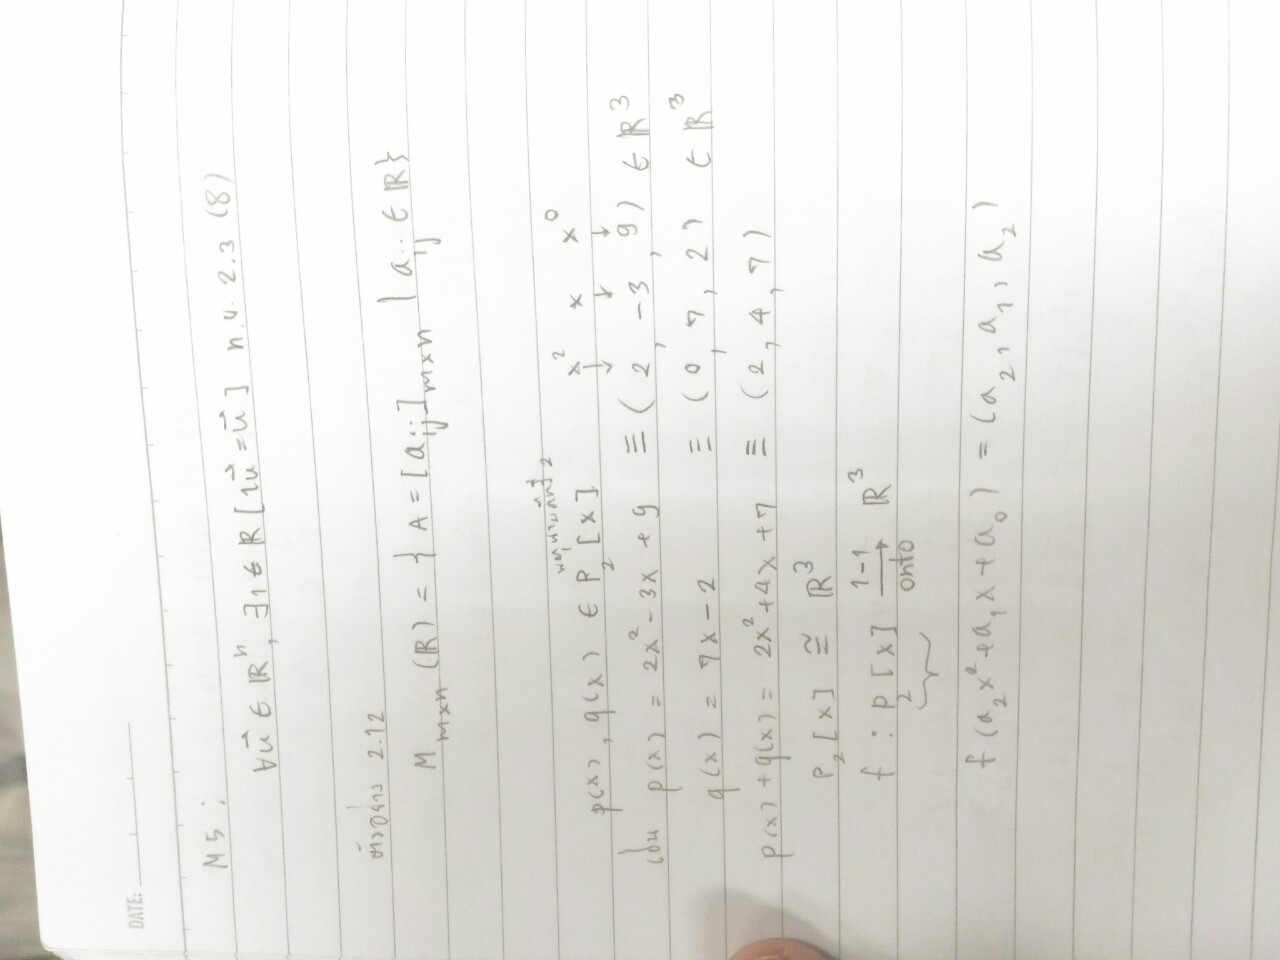 DATE:
M5 :
∀u⃗ ∈ ℝⁿ, ∃1 ∈ ℝ [1u⃗ = u⃗] ท.บ. 2.3 (8)
ตัวอย่าง 2.12
M_{m×n} (ℝ) = { A = [a_{ij}]_{m×n} | a_{ij} ∈ ℝ}
พหุนามดีกรี 2
x² x x⁰
p(x), q(x) ∈ P₂[x] ↓ ↓ ↓
เช่น p(x) = 2x² - 3x + 9 ≡ (2, -3, 9) ∈ ℝ³
q(x) = 7x - 2 ≡ (0, 7, 2) ∈ ℝ³
p(x) + q(x) = 2x² + 4x + 7 ≡ (2, 4, 7)
P₂[x] ≅ ℝ³
f : P₂[x] 1-1 → onto ℝ³
f(a₂x² + a₁x + a₀) = (a₂, a₁, a₂)